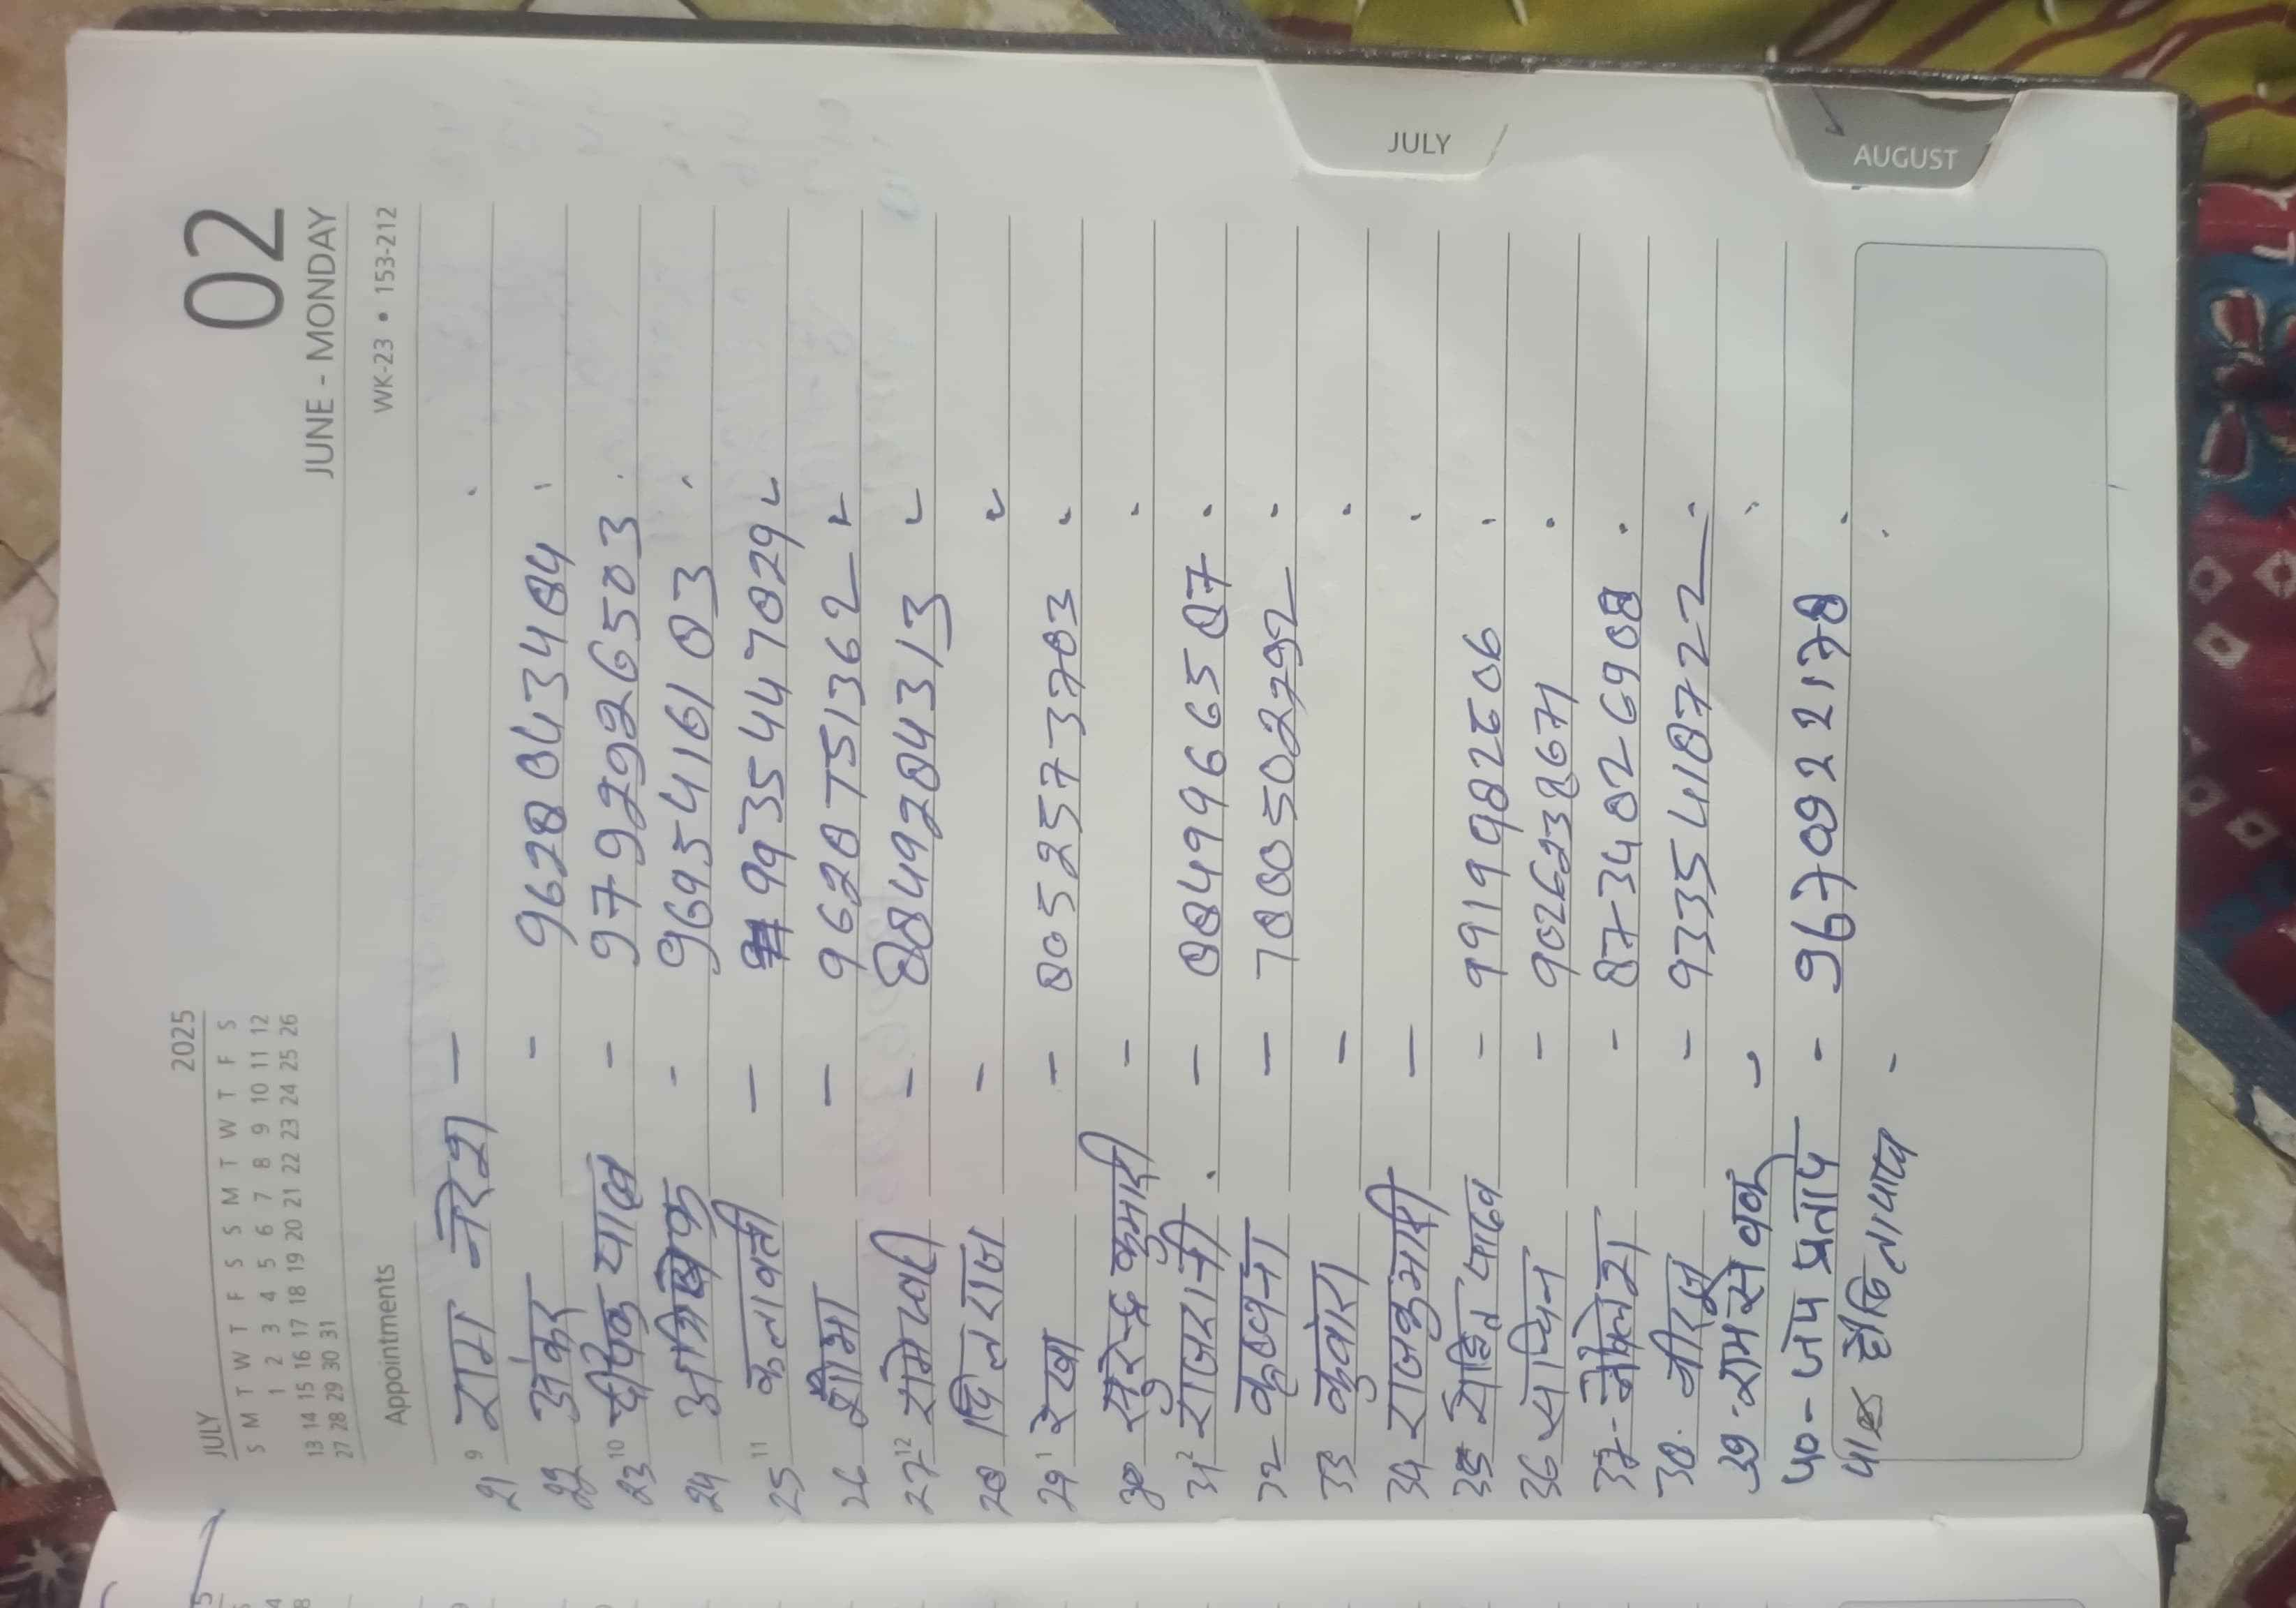 JULY 2025
S M T W T F S S M T W T F S
1 2 3 4 5 6 7 8 9 10 11 12
13 14 15 16 17 18 19 20 21 22 23 24 25 26
27 28 29 30 31
02
JUNE - MONDAY
WK-23 • 153-212
Appointments
JULY
AUGUST
21 9 राम नरेश -
22 अंकर - 9628843484
23 10 दीपक यादव - 9792926503
24 अभिषेक - 9695416183
25 11 कलावती - 9935447029
26 शोभा - 9628751362
27 12 रामेश्वरी - 8849284313
28 दिलराज -
29 1 रेखा - 8052573783
30 सुरेन्द्र कुमारी -
31 2 राजरानी - 8849966587
32 - 7805027292
33 कुवारा -
34 राजकुमारी -
35 रोहित यादव - 9919982606
36 सचिन - 9026238671
37 - 8734826908
38. नीरज - 9335418722
39. रामसेवक -
40 - जय प्रताप - 9670922178